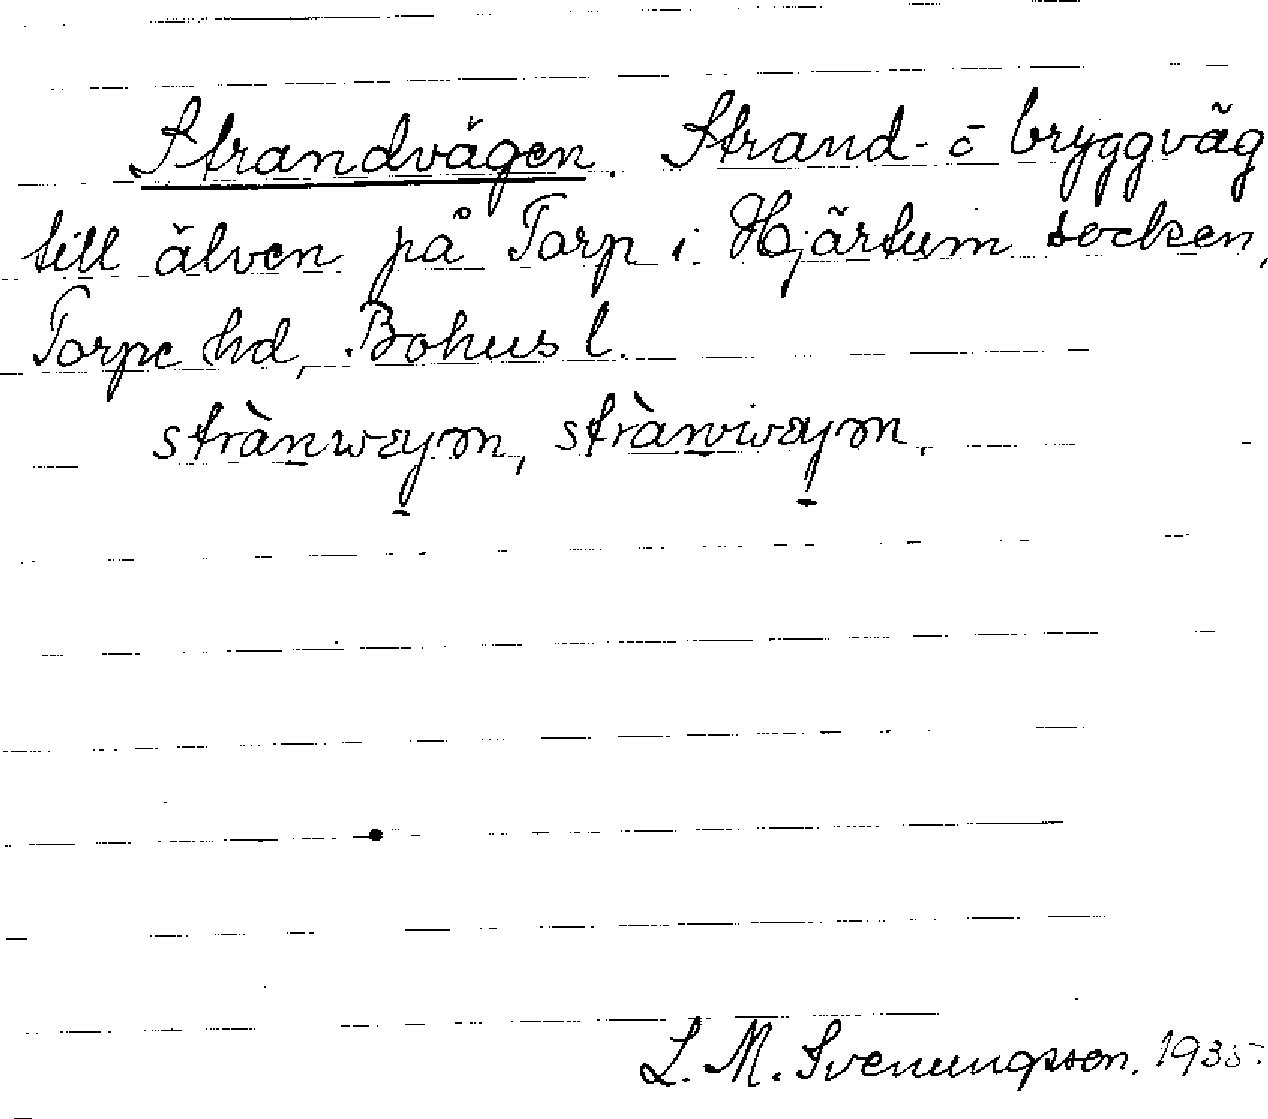 Strandvägen. Strand- ō bryggväg
till älven på Torp i Hjärtum socken,
Torpe hd, Bohus l.
L. M. Svenungsson. 1935.